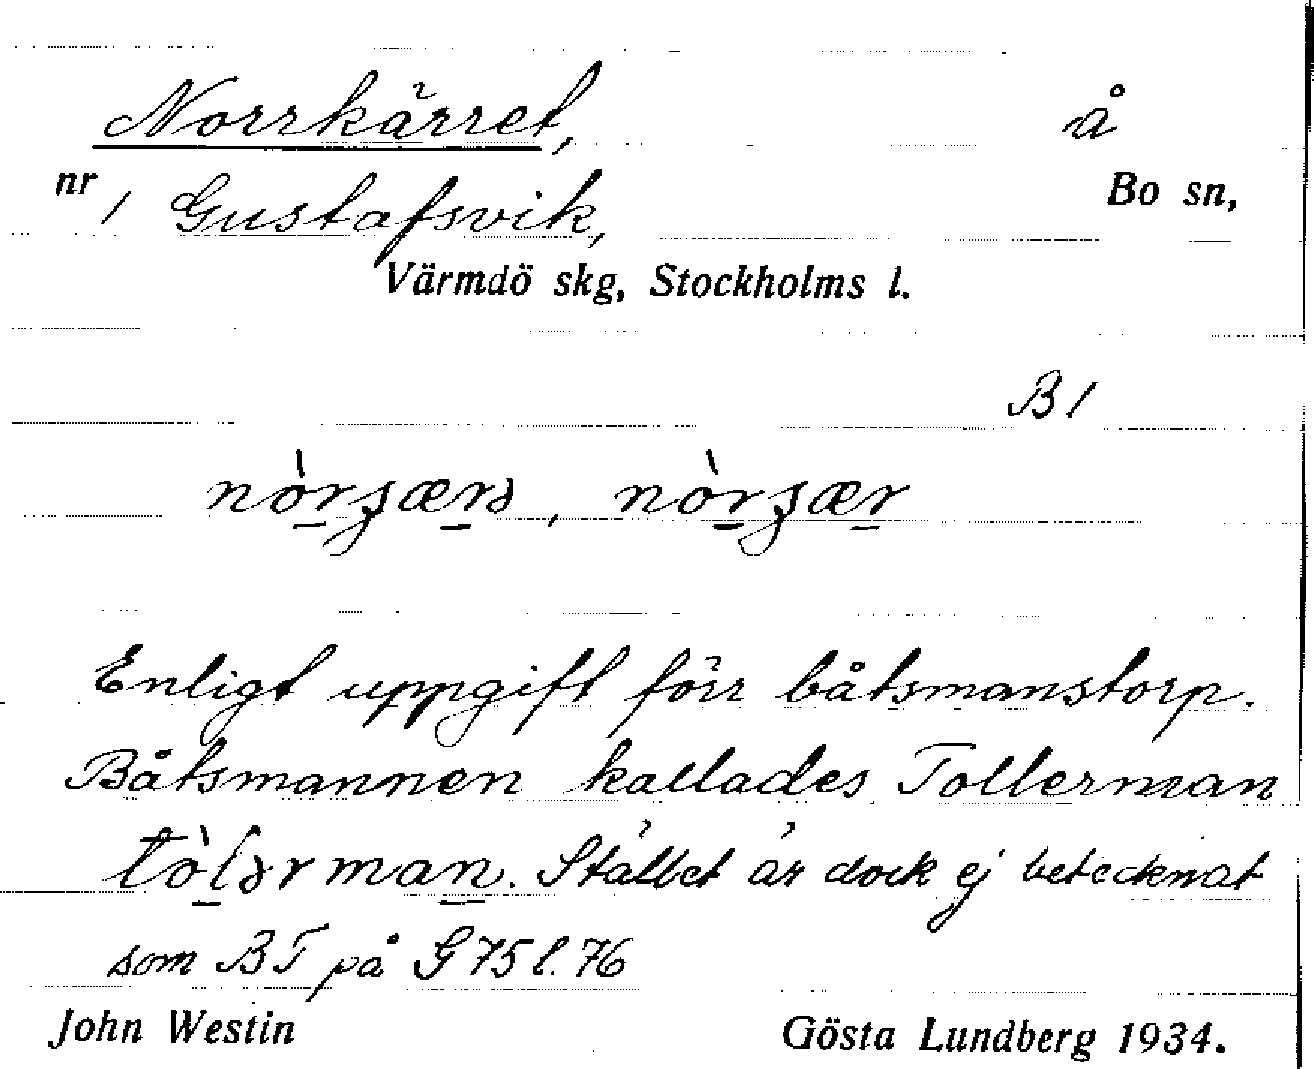 Norrkärret, å
nr 1 Gustafsvik, Bo sn,
Värmdö skg, Stockholms l.
B 1
Enligt uppgift förr båtsmanstorp.
Båtsmannen kallades Tollerman
Stället är dock ej betecknat
som BT på G 75 l. 76
John Westin Gösta Lundberg 1934.